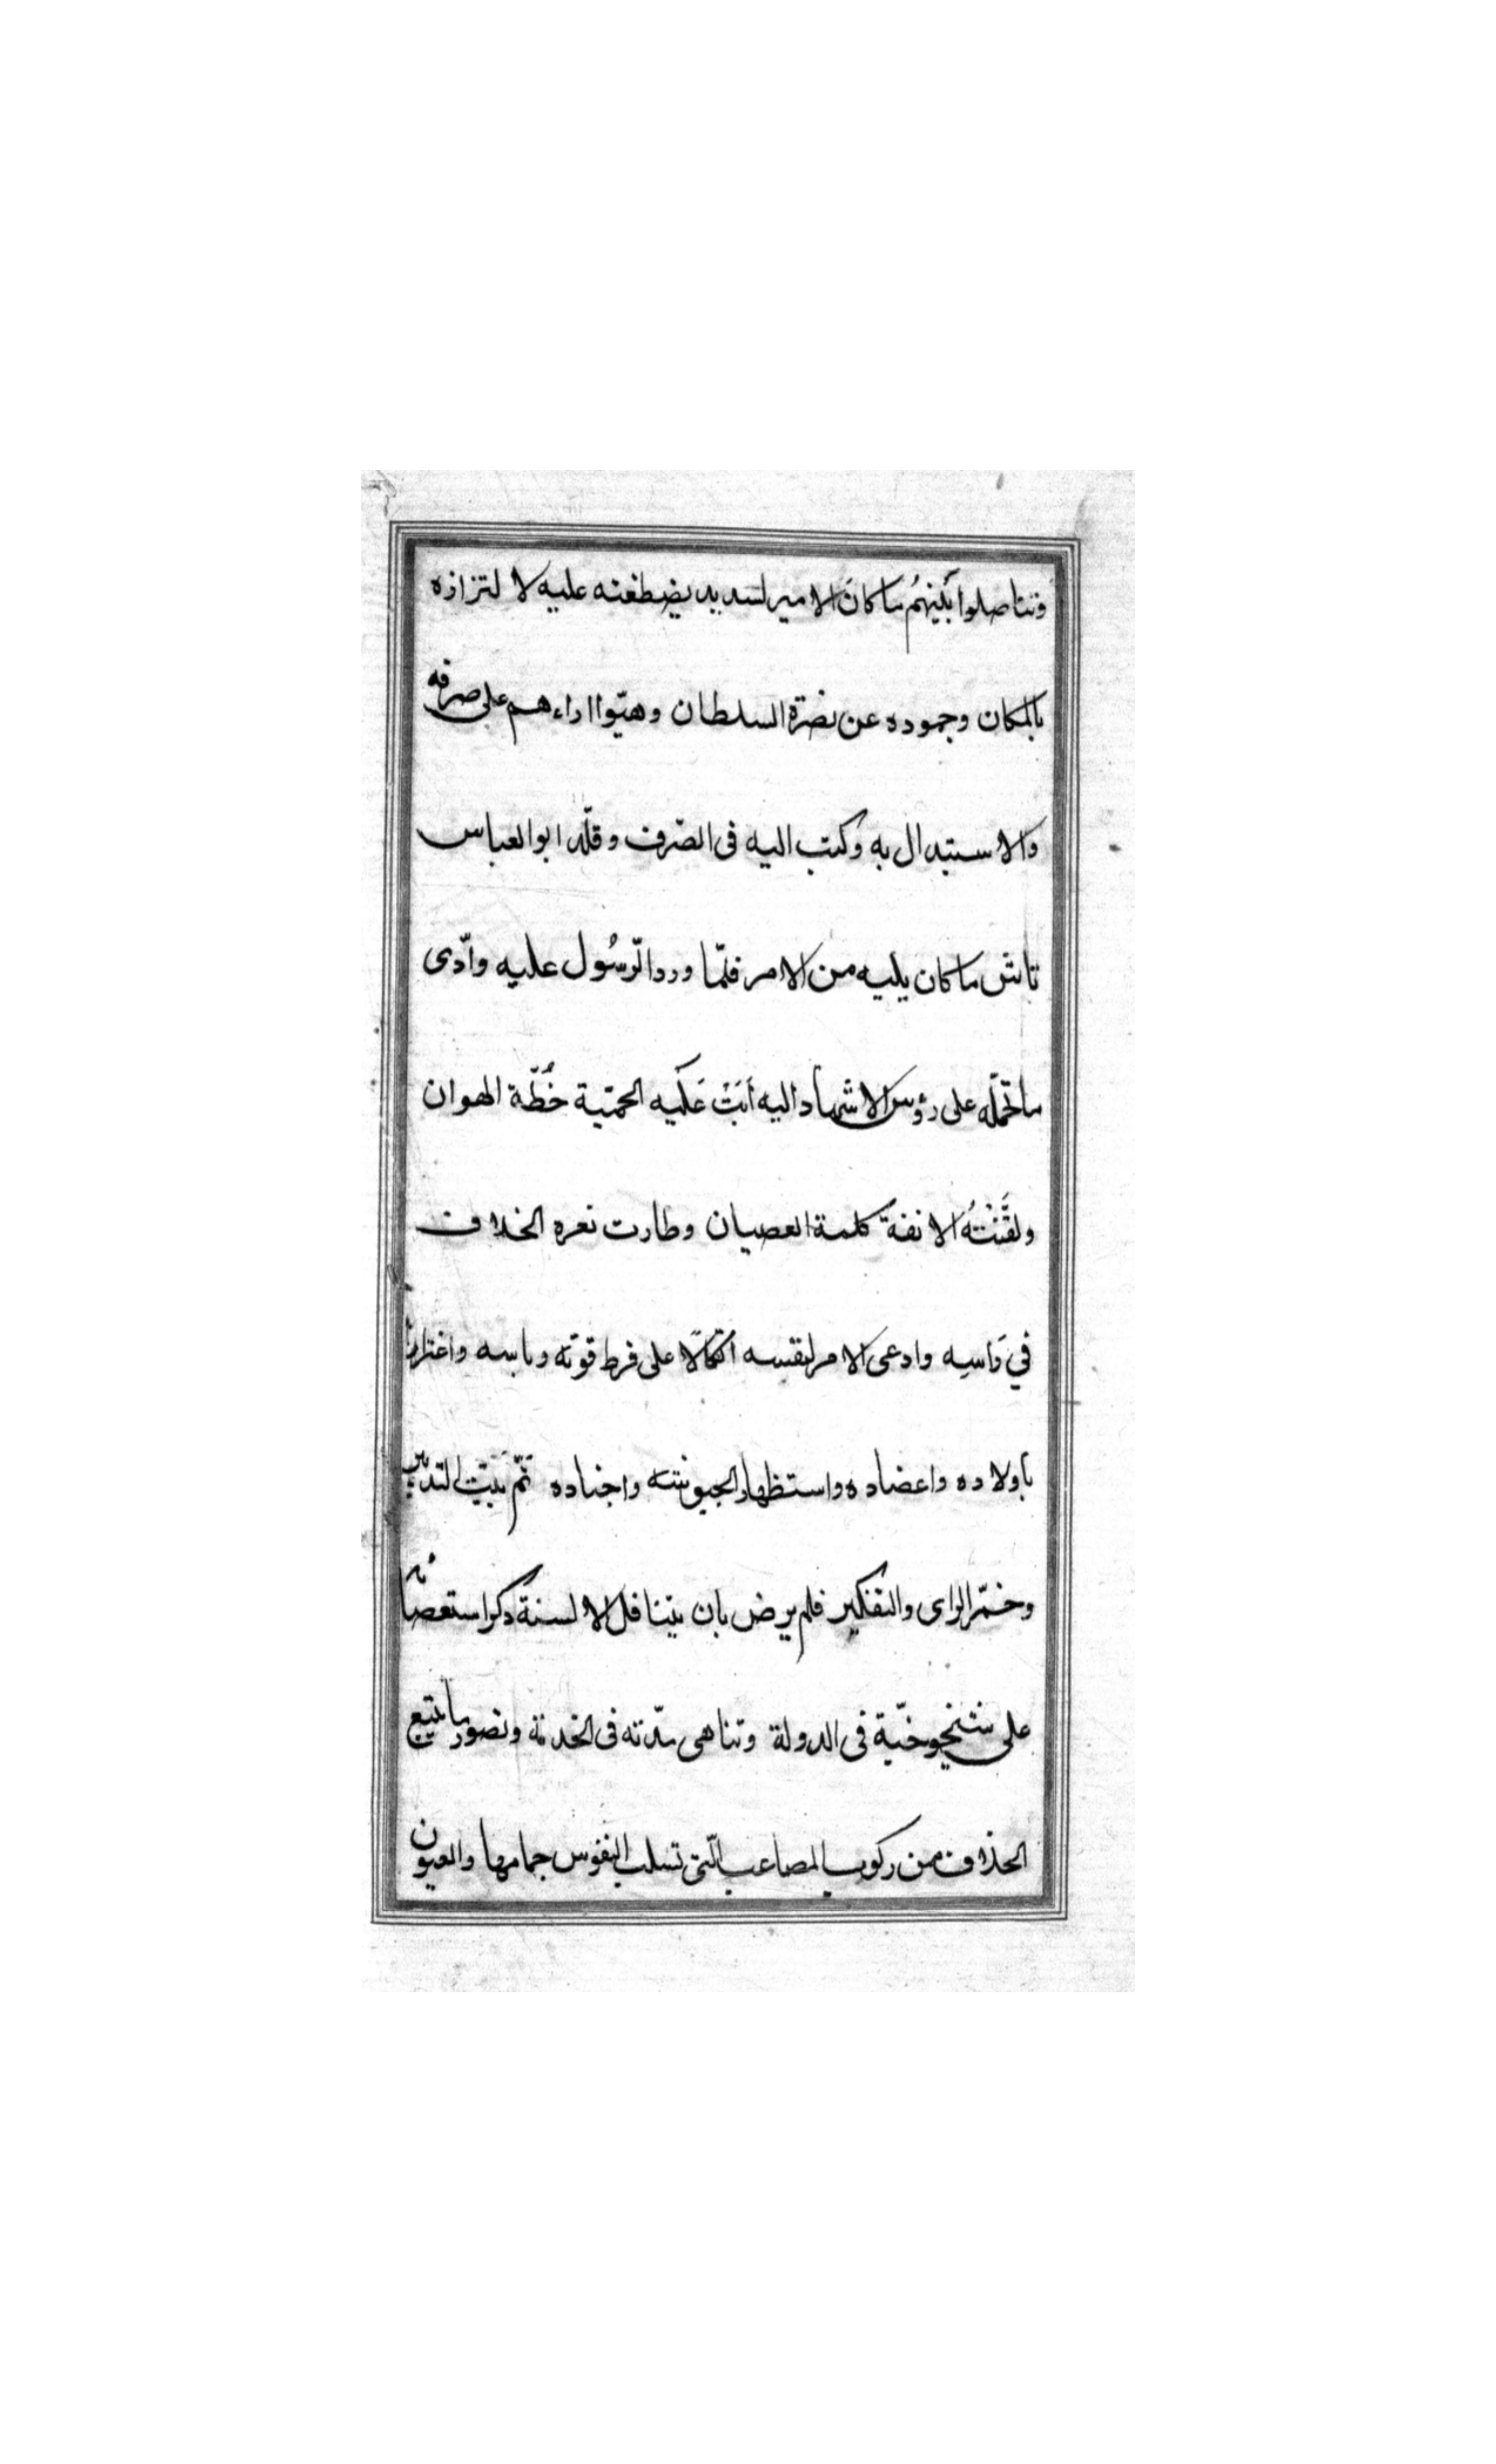 وتناصلوا بَينهُم ما كانَ الامير لسديد يضطغنه عليه لا لتزازه
بالمكان وجموده عن نصرة السلطان وهيّوا اراءهم على صرفه
والاستبدال به وكتب اليه فى الصّرف وقلّد ابو العباس
تاش ما كان يليه من الامر فلمّا ورد الرّسُول عليه وادّى
ما تحمّله على رؤس الاشهاد اليه اَبَتْ عَلَيه الحميّة خُطّة الهوان
ولقَّنَتْهُ الانفة كلمة العصيان وطارت نعره الخلاف
في رَاسِه وادعى الامر لنفسه اتّكالًا على فرط قوّته وباسه واغترارا
باولاده واعضاده واستظهارا لجيوشه واجناده ثمّ بَيّتَ التدبير
وخمّر الراى والتفكير فلم يرض بان يتناقل الالسنة ذكر استعصائه
على شيخوخيّة فى الدولة وتناهى مدّته فى الخدمة وتصور ما يتبع
الخلاف من ركوب المصاعب الّتى تسلب النفوس جمامها والعيون